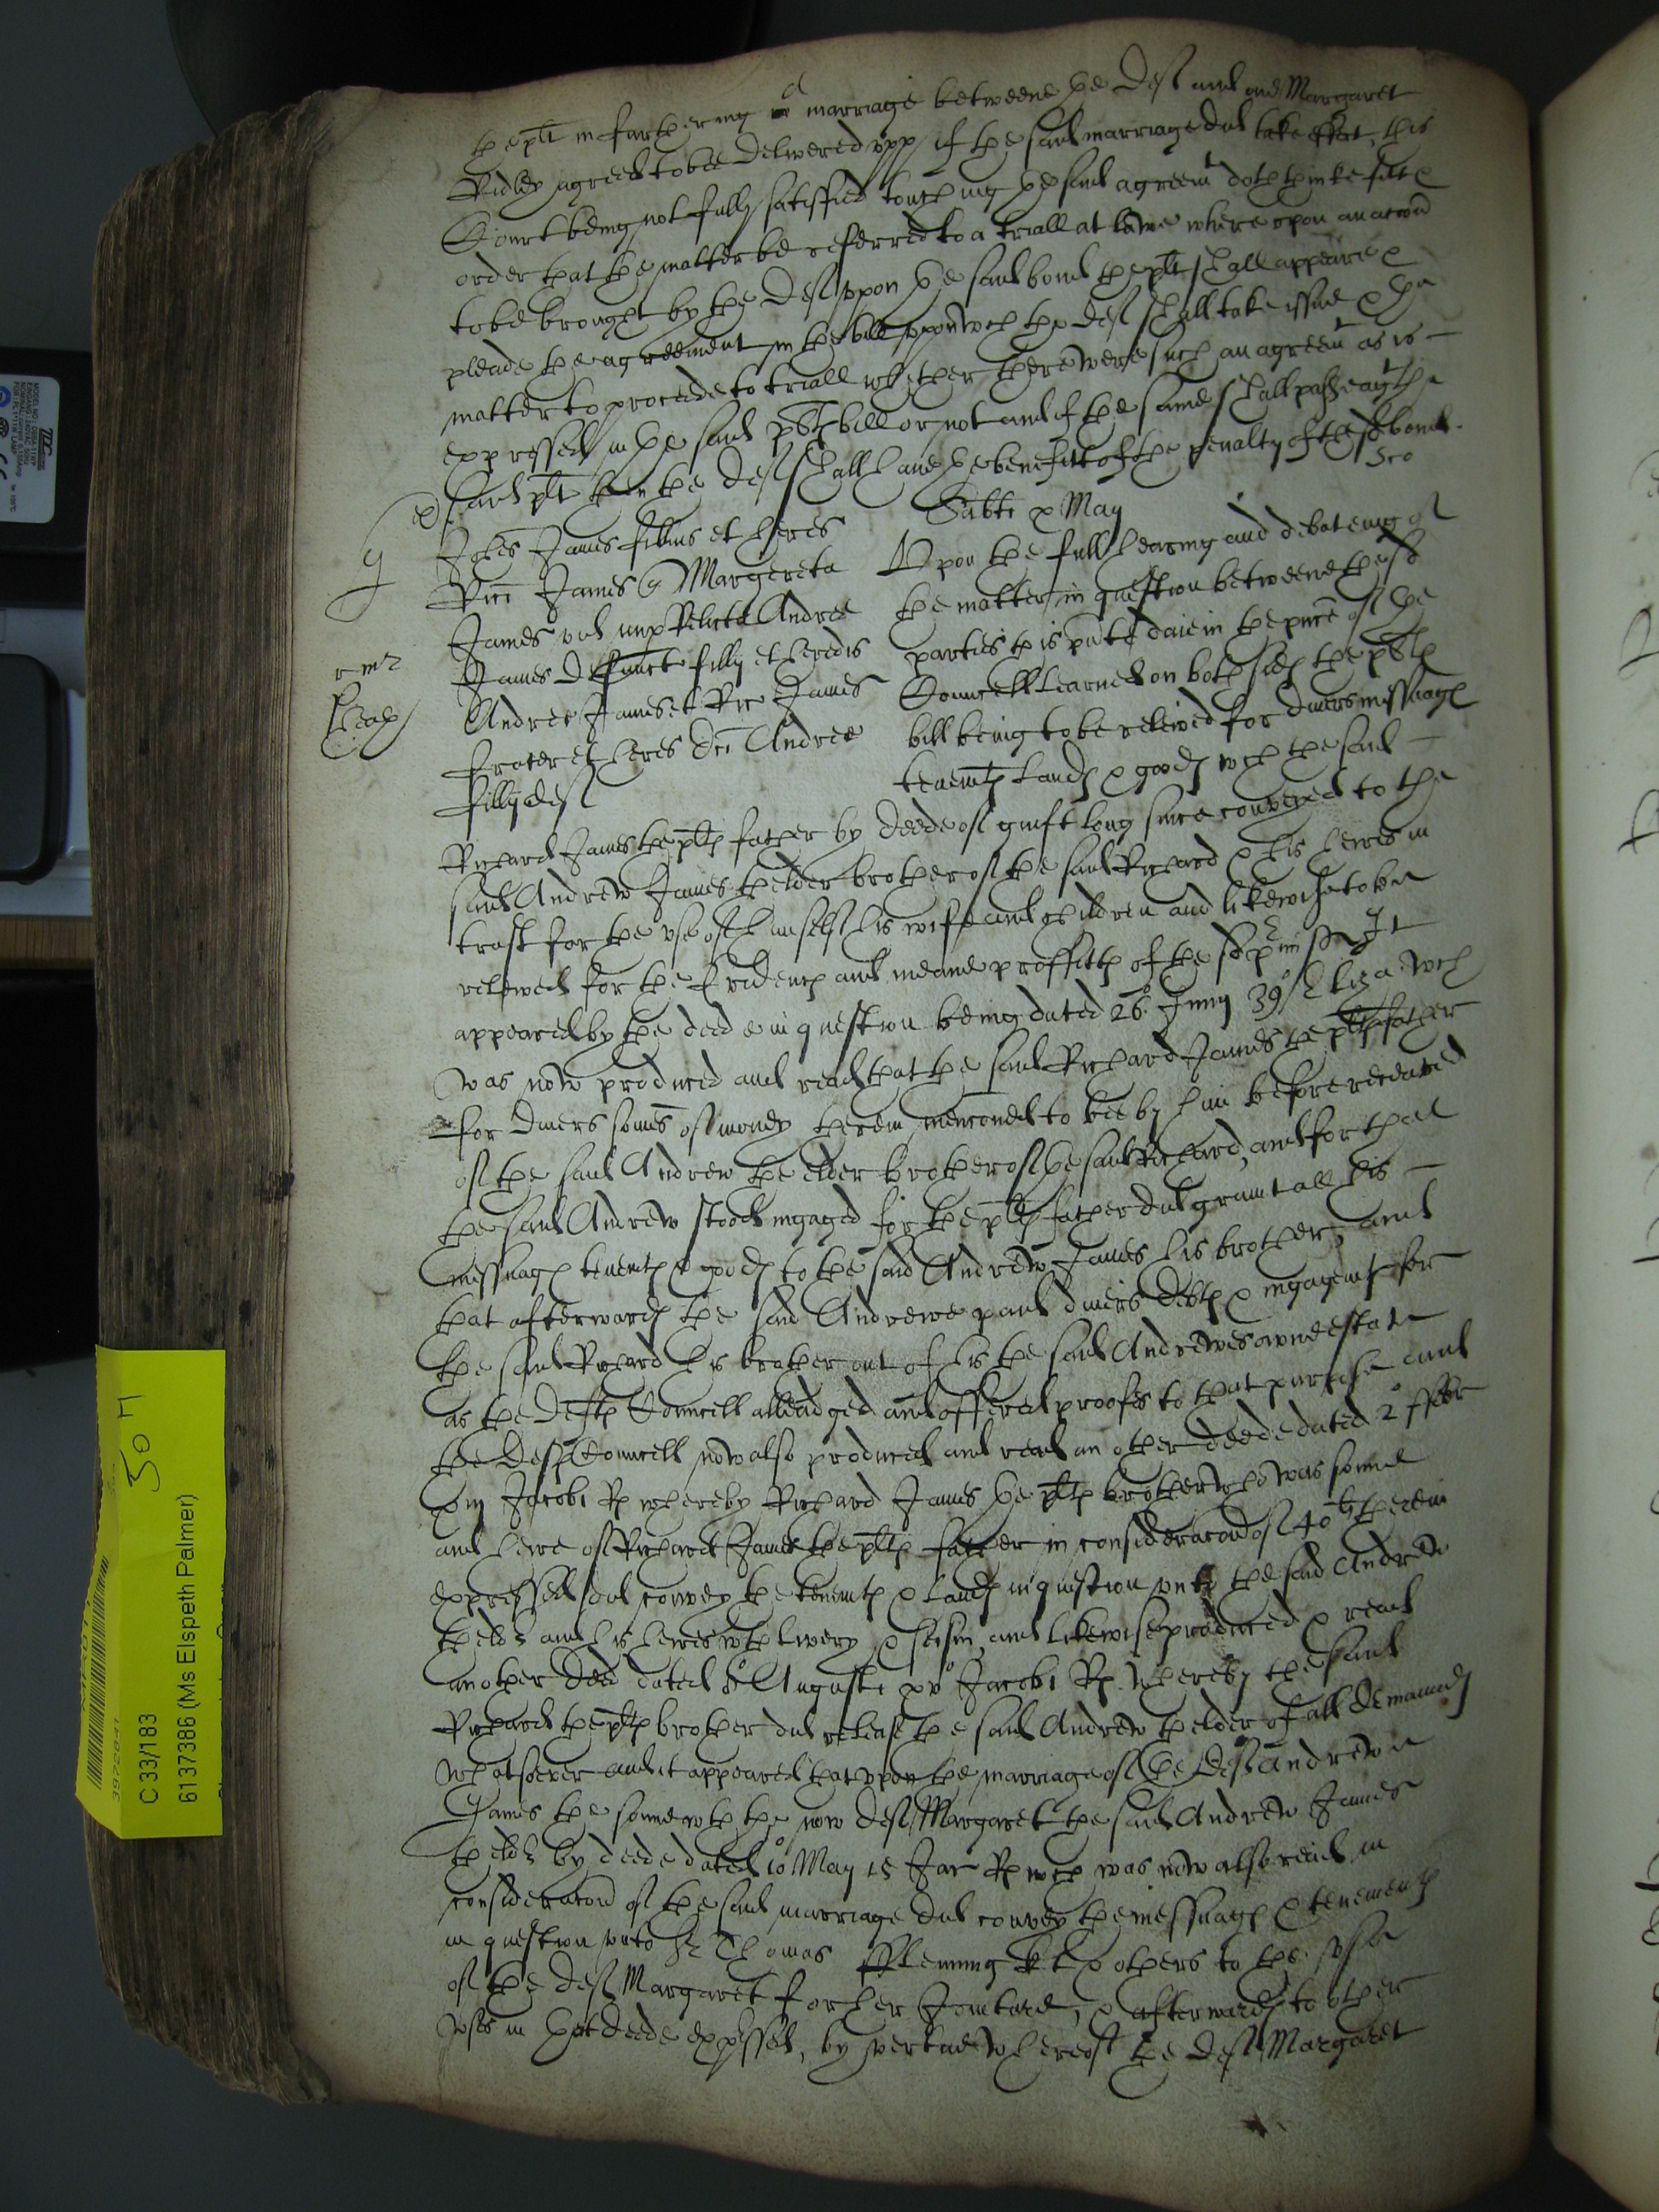 the plt in farthering a marriage betweene the Deft and one Margaret
Ridley agreed to bee delivered upp if the said marriage did take effect, this
Court being not fully satisfied touching the said agreemt doth thinke fitt &
order that the matter be referred to a triall at lawe where upon an accon
to be brought by the Deft upon the said bond the plt shall appeare &
pleade the agreement in the bill upon wch the deft shall take issue & the
matter to proceede to triall whether there were such an agreemt as is
expressed in the said plts bill or not and if the same shall passe agt the
said plt then the Deft shall have the benefitt of the penalty of the sd bond.
Sabti x May
Johes James filius et heres
Rici James & Margareta
James vid nup Relicta Andree
James Defuncti filij et heredis
Andree James et Ric James
frater et heres dci Andree
filij deft
Upon the full hearing and debateing of
the matter in question betweene the sd
parties this pnte daie in the pnce of the
Councell learned on both sides the plts
bill being to be releived for divers messuages
tenemts lands & goods wch the said
Richard James the plts father by deede of guift long since conveyed to the
said Andrew James thelder brother of the said Richard & his heires in
trust for the use of himself his wife and children and likewise to be
releived for the Evidences and meane proffitts of the sd pmisses It
appeared by the deede in question being dated 26 Junij 39 Eliza wch
was now produced and read that the said Richard James the plts father
for divers somes of money therein menconed to bee by him before receaved
of the said Andrew the elder brother of the said Richard, and for that
the said Andrew stood ingaged for the plts father did graunt all his
messuages tenemts & goods to the said Andrew James his brother, and
that afterwards the said Andrewe paid divers debts & ingagemts for
the said Richard his brother out of his the said Andrewes owne estate
as the Defts Councell alleadged and offered proofes to that purpose and
the Defts Councell now also produced and read an other deede dated 2 ffebr
xiij Jacobi R whereby Richard James the plts brother who was sonne
and heire of Richard James the plts father in consideracon of 40 li therein
expressed did convey the tenemts & lands in question unto the said Andrew
thelder and his heires wth livery & seisin, and likewise produced & read
another deed dated 8 Augusti xv Jacobi R. whereby the said
Richard the plts brother did release the said Andrew thelder of all demaunds
whatsoever and it appeared that upon the marriage of the Deft Andrewe
James the sonne wth the now deft Margaret the said Andrew James
thelder by deede dated 10 May 15 Jac R wch was now also read in
consideracon of the said marriage did convey the messuages & tenements
in question unto Sr Thomas ffleming kt & others to the use
of the deft Margaret for her Jointure, & afterwards to other
uses in that deede expressed, by vertue whereof the deft Margaret
C 33/183
6137386 (Ms Elspeth Palmer)